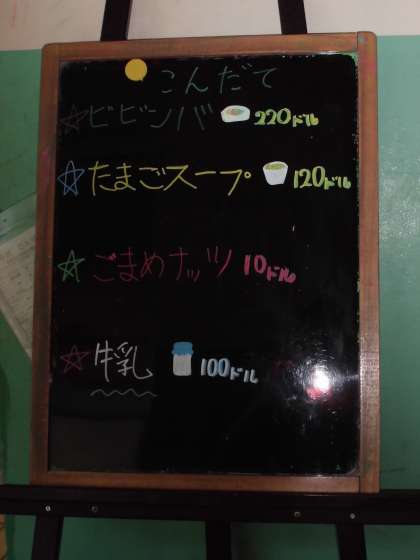 こんだて
☆ビビンバ 220ドル
☆たまごスープ 120ドル
☆ごまめナッツ 10ドル
☆牛乳 100ドル